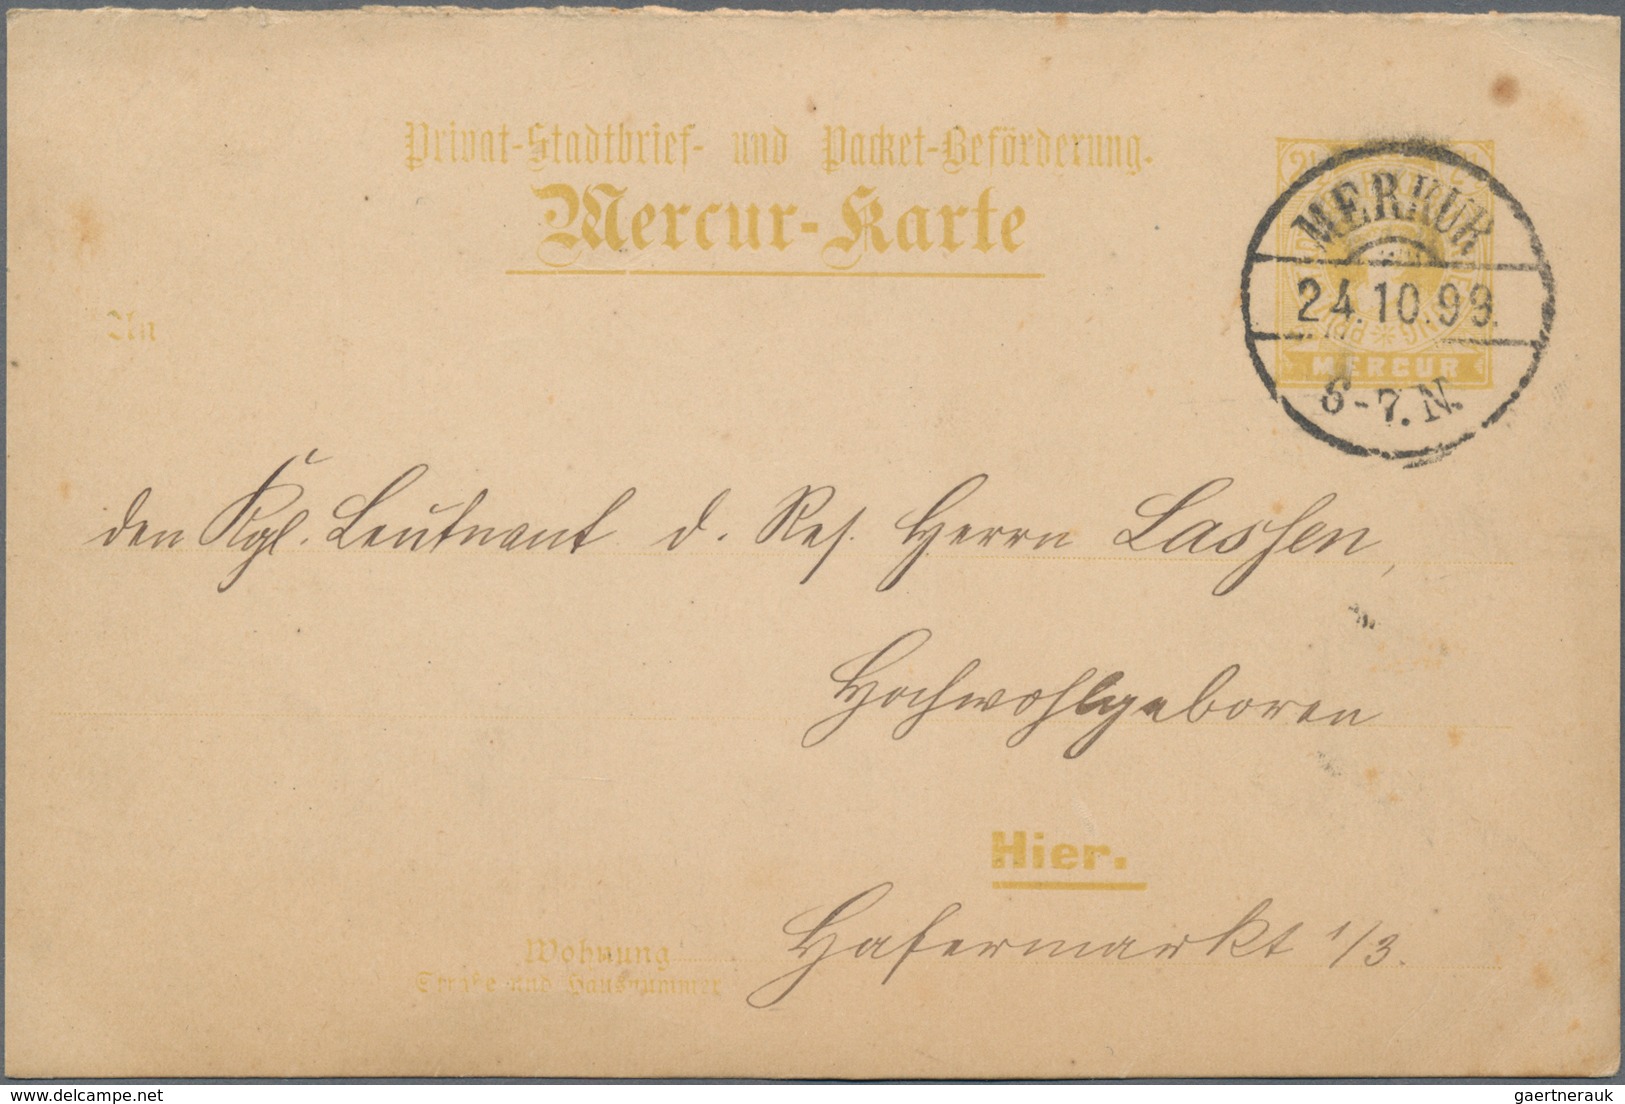 Privat-Stadtbrief- und Packet-Beförderung.
Mercur-Karte
MERKUR
24.10.99.
6-7.N.
MERCUR
An
den Kgl. Leutnant d. Res. Herrn Lassen,
Hochwohlgeboren
Hier.
Wohnung
Straße und Hausnummer
Hafermarkt 1/3.
www.delcampe.net
gaertnerauk